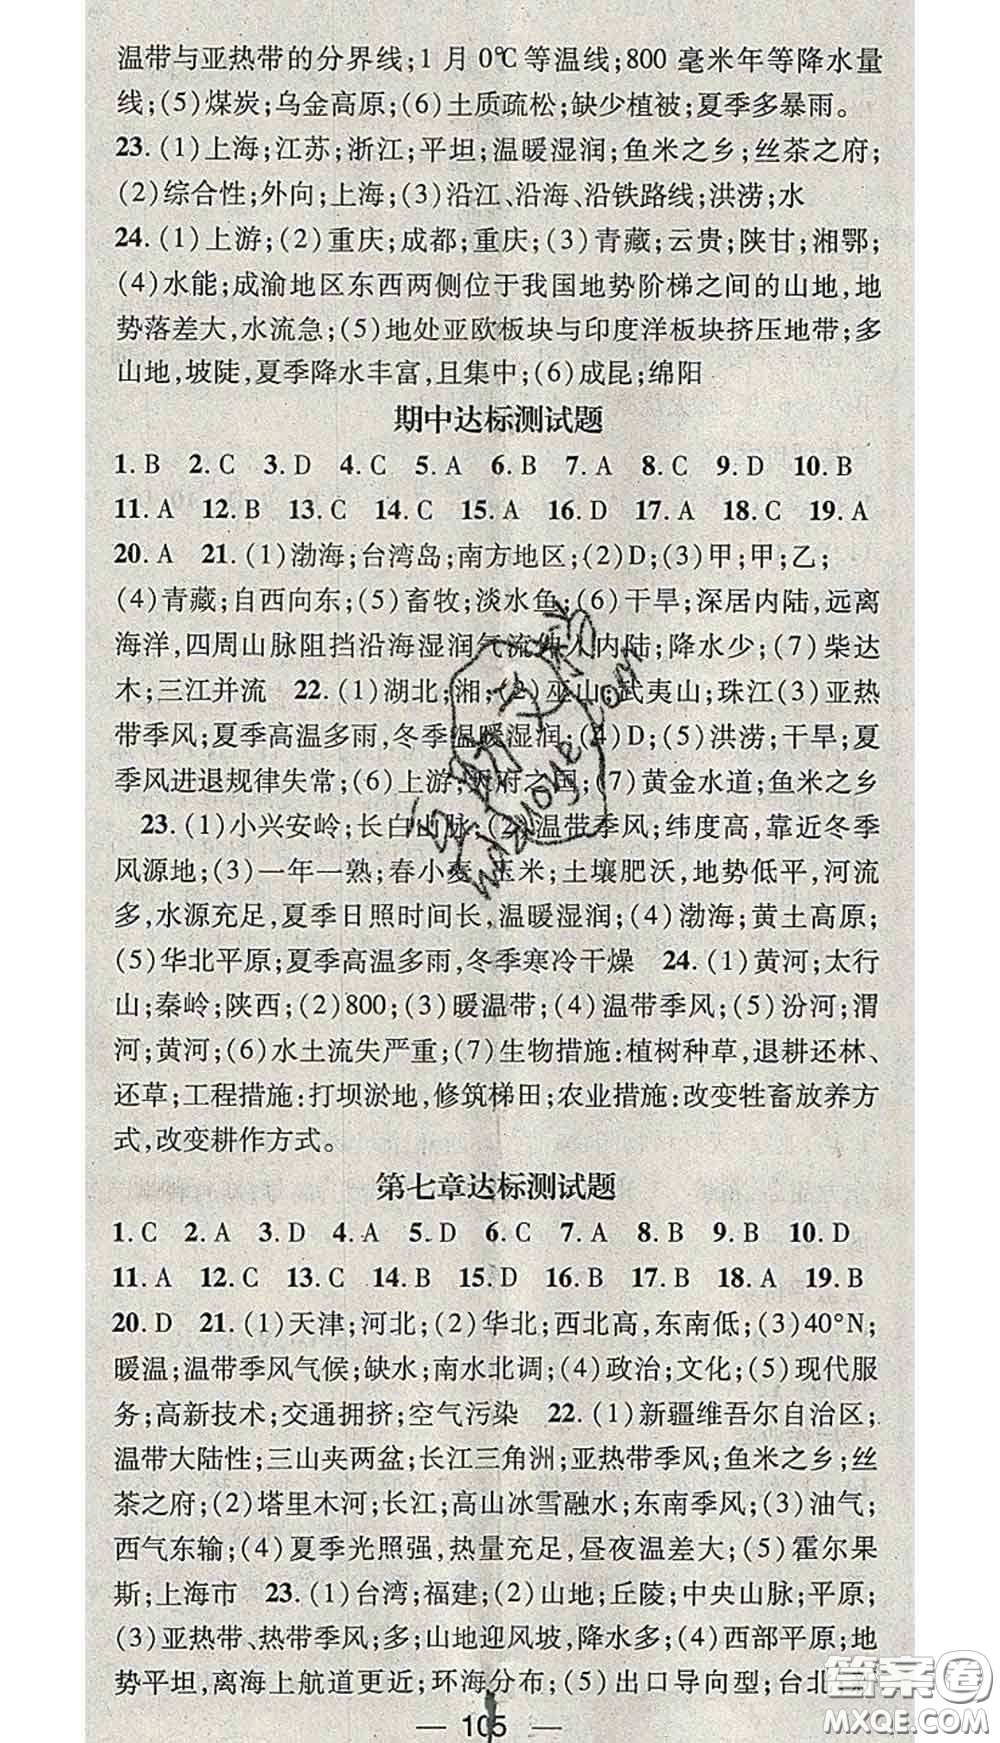 温带与亚热带的分界线;1 月 0℃等温线;800 毫米年等降水量
线;(5)煤炭;乌金高原;(6)土质疏松;缺少植被;夏季多暴雨。
23. (1)上海;江苏;浙江;平坦;温暖湿润;鱼米之乡;丝茶之府;
(2)综合性;外向;上海;(3)沿江、沿海、沿铁路线;洪涝;水
24. (1)上游;(2)重庆;成都;重庆;(3)青藏;云贵;陕甘;湘鄂;
(4)水能;成渝地区东西两侧位于我国地势阶梯之间的山地,地
势落差大,水流急;(5)地处亚欧板块与印度洋板块挤压地带;多
山地,坡陡,夏季降水丰富,且集中;(6)成昆;绵阳
期中达标测试题
1. B 2. C 3. D 4. C 5. A 6. B 7. A 8. C 9. D 10. B
11. A 12. B 13. C 14. C 15. A 16. D 17. A 18. C 19. A
20. A 21. (1)渤海;台湾岛;南方地区;(2)D;(3)甲;甲;乙;
(4)青藏;自西向东;(5)畜牧;淡水鱼;(6)干旱;深居内陆,远离
海洋,四周山脉阻挡沿海湿润气流伸入内陆;降水少;(7)柴达
木;三江并流 22. (1)湖北;湘;(2)巫山;武夷山;珠江(3)亚热
带季风;夏季高温多雨,冬季温暖湿润;(4)D;(5)洪涝;干旱;夏
季风进退规律失常;(6)上游;天府之国;(7)黄金水道;鱼米之乡
23. (1)小兴安岭;长白山脉;(2)温带季风;纬度高,靠近冬季
风源地;(3)一年一熟;春小麦;玉米;土壤肥沃,地势低平,河流
多,水源充足,夏季日照时间长,温暖湿润;(4)渤海;黄土高原;
(5)华北平原;夏季高温多雨,冬季寒冷干燥 24. (1)黄河;太行
山;秦岭;陕西;(2)800;(3)暖温带;(4)温带季风;(5)汾河;渭
河;黄河;(6)水土流失严重;(7)生物措施:植树种草,退耕还林、
还草;工程措施:打坝淤地,修筑梯田;农业措施:改变牲畜放养方
式,改变耕作方式。
第七章达标测试题
1. C 2. A 3. D 4. A 5. D 6. C 7. A 8. B 9. B 10. D
11. A 12. C 13. C 14. B 15. D 16. B 17. B 18. A 19. B
20. D 21. (1)天津;河北;(2)华北;西北高,东南低;(3)40°N;
暖温;温带季风气候;缺水;南水北调;(4)政治;文化;(5)现代服
务;高新技术;交通拥挤;空气污染 22. (1)新疆维吾尔自治区;
温带大陆性;三山夹两盆;长江三角洲;亚热带季风;鱼米之乡;丝
茶之府;(2)塔里木河;长江;高山冰雪融水;东南季风;(3)油气;
西气东输;(4)夏季光照强,热量充足,昼夜温差大;(5)霍尔果
斯;上海市 23. (1)台湾;福建;(2)山地;丘陵;中央山脉;平原;
(3)亚热带、热带季风;多;山地迎风坡,降水多;(4)西部平原;地
势平坦,离海上航道更近;环海分布;(5)出口导向型;台北
— 105 —
答案卷
MXQE.COM